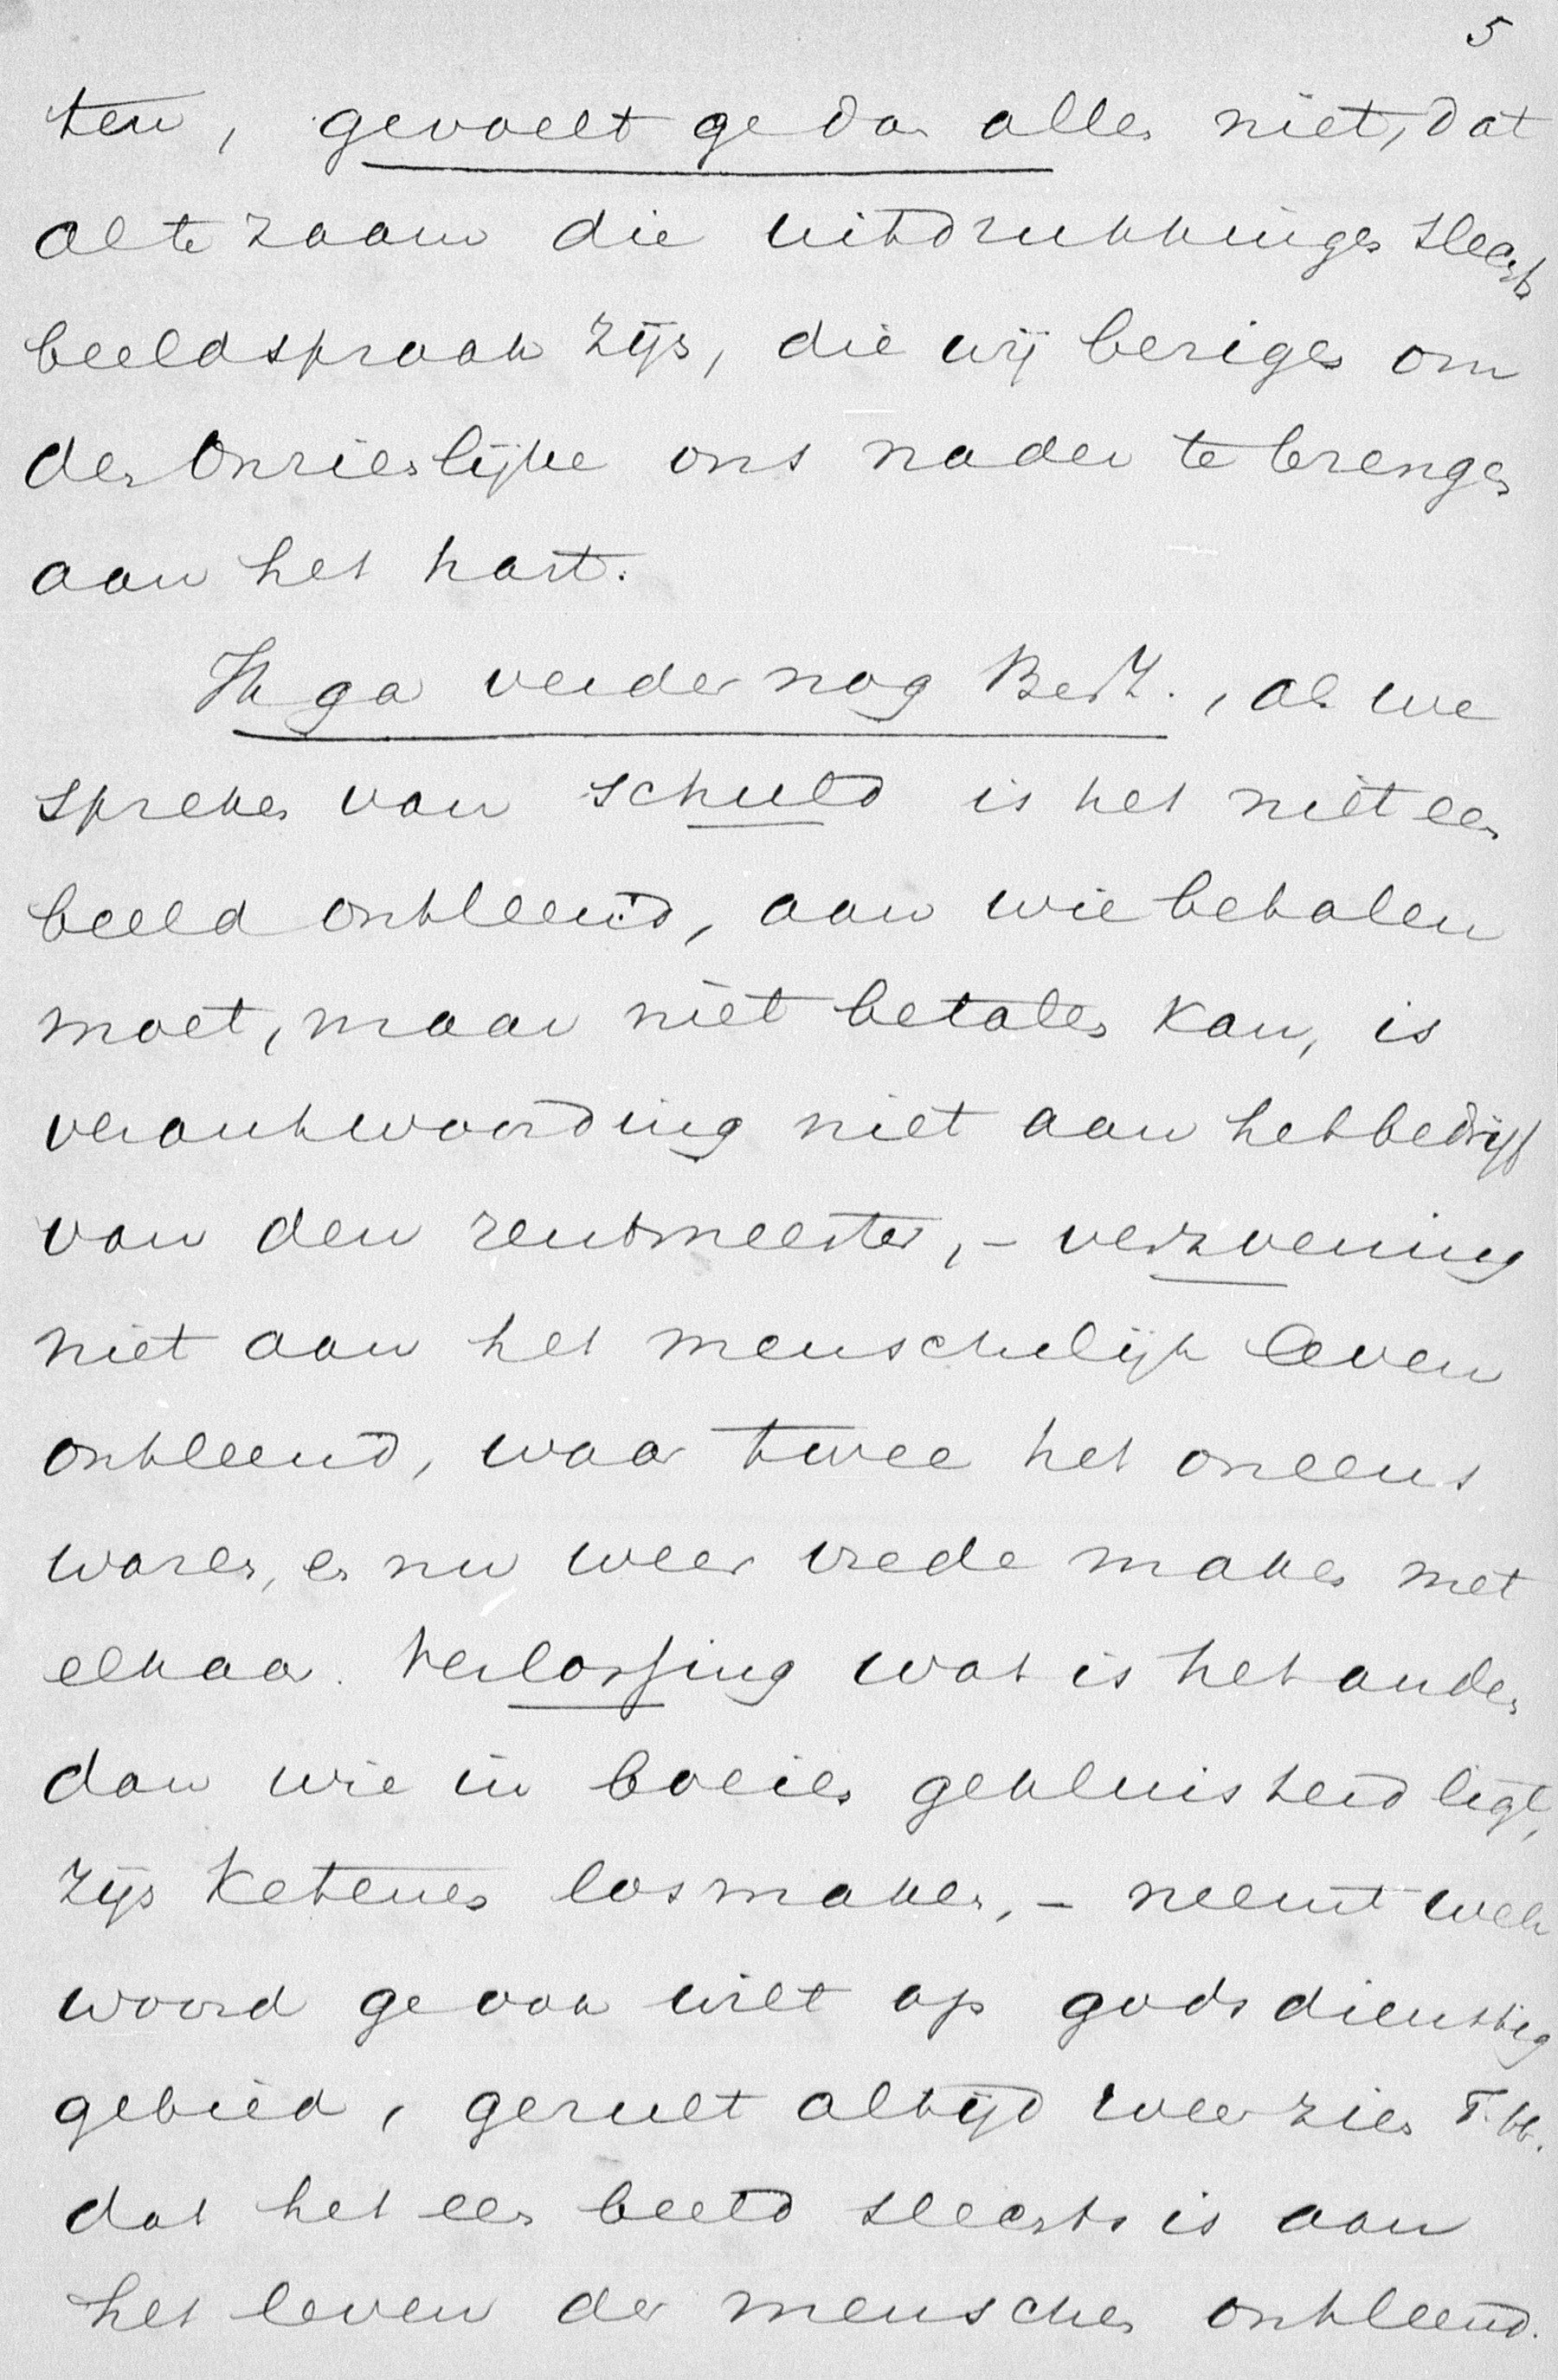 5
ten, gevoelt ge dan alles niet, dat
al te zaam die uitdrukkingen slechts
beeldspraak zijn, die wij bezigen om
den Onzienlijke ons nader te brengen
aan het hart.
Ik ga verder nog Best., als we
spreken van schuld is het niet een
beeld ontleend, aan wie betalen
moet, maar niet betalen kan, is
verantwoording niet aan het bedrijf
van den rentmeester, – verzoening
niet aan het menschelijk leven
ontleend, waar twee het oneens
waren, en nu weer vrede maken met
elkaar. Verlossing wat is het anders
dan wie in boeien gekluisterd ligt,
zijn ketenen losmaken, – neemt welk
woord ge ook wilt op godsdienstig
gebied, ge zult altijd weer zien
dat het een beeld slechts is aan
het leven der menschen ontleend.